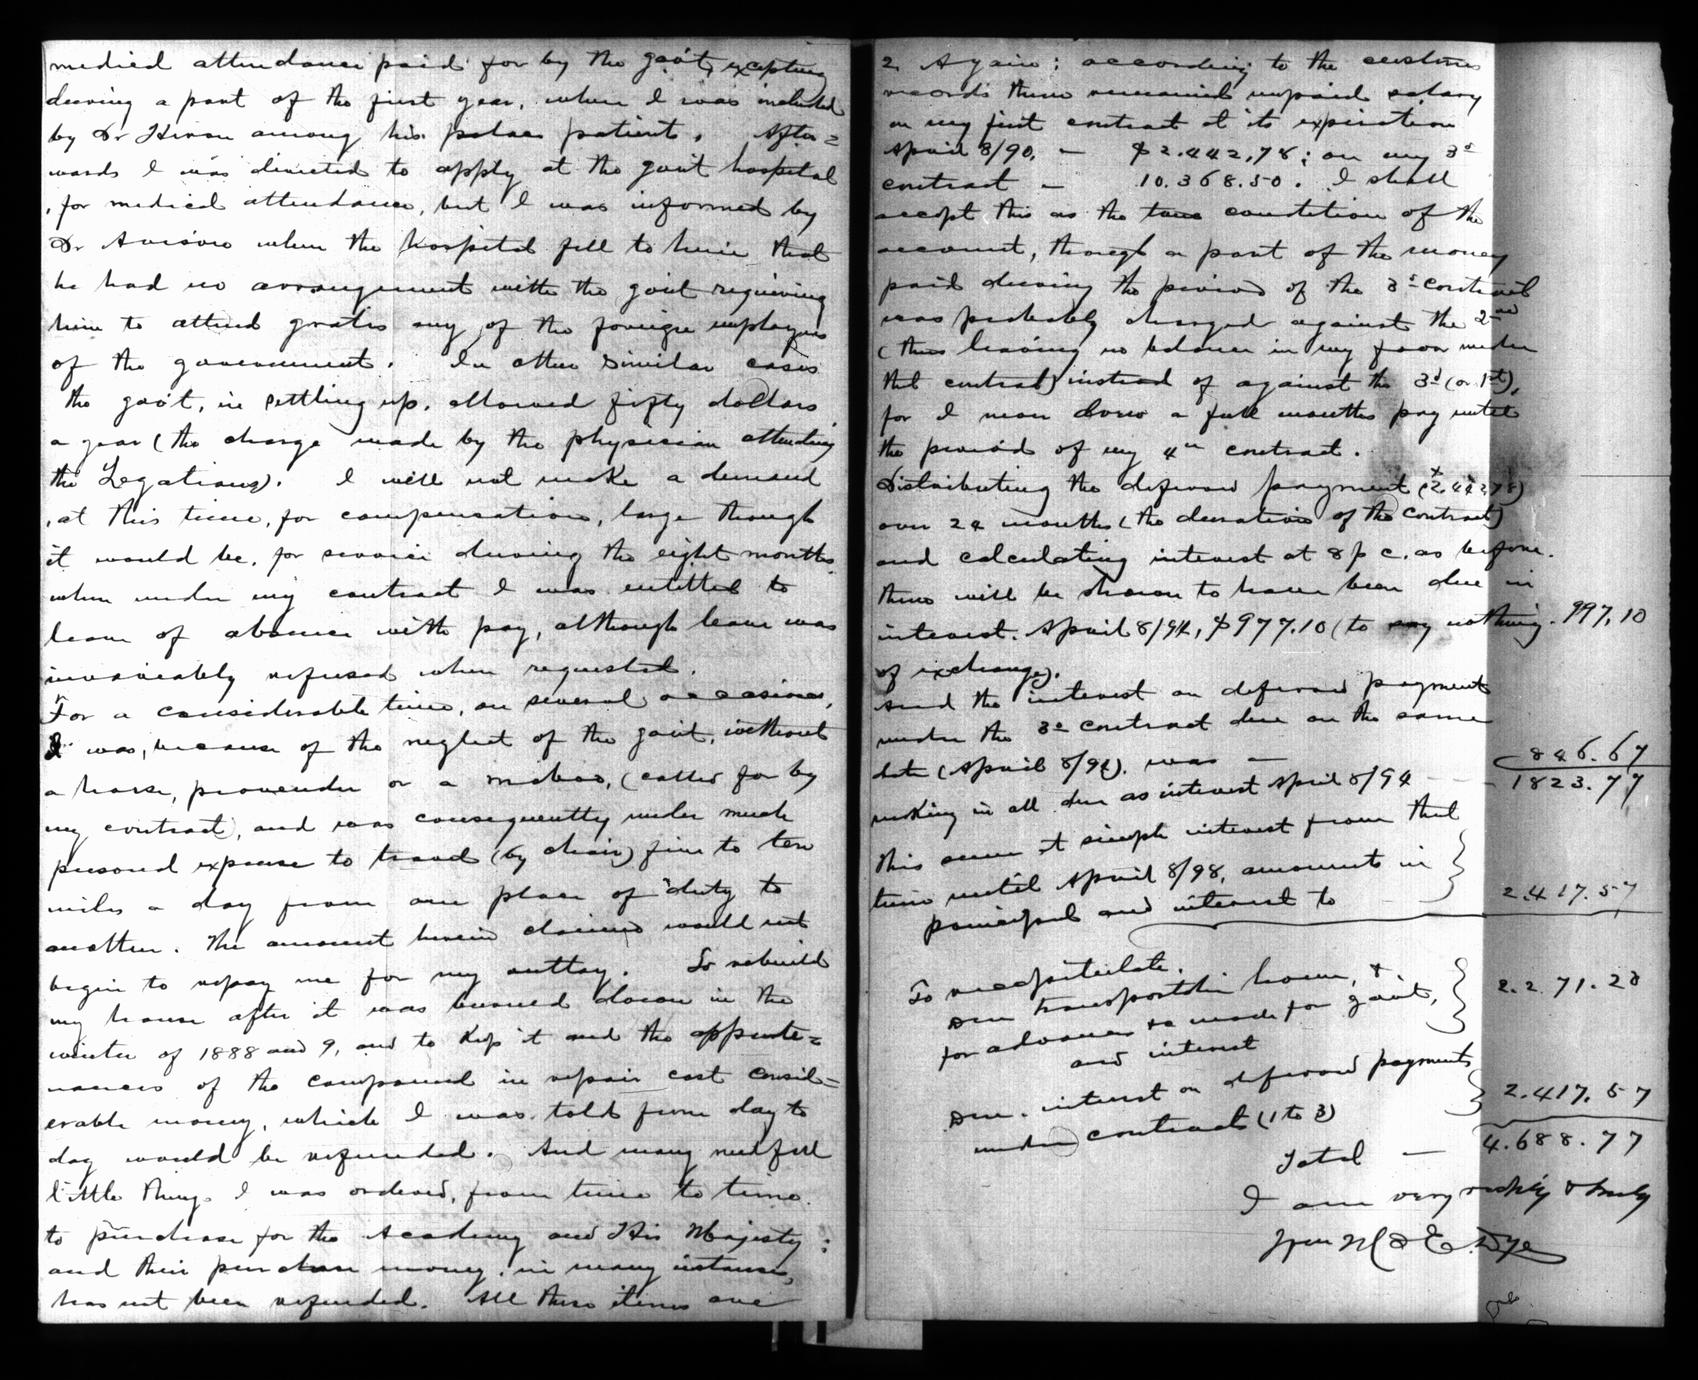 medical attendance paid for by the gov't, excepting
during a part of the first year, when I was included
by Dr Heron among his palace patients. After=
wards I was directed to apply at the gov't hospital
for medical attendance, but I was informed by
Dr Avison when the hospital fell to him that
he had no arrangement with the gov't requiring
him to attend gratis any of the foreign employees
of the government. In other similar cases
the gov't, in settling up, allowed fifty dollars
a year (the charge made by the physician attending
the Legations). I will not make a demand
at this time, for compensation, large though
it would be, for service during the eight months
when under my contract I was entitled to
leave of absence with pay, although leave was
invariably refused when requested.
For a considerable time, on several occasions,
I was, because of the neglect of the gov't, without
a horse, provender or a mapoo, (called for by
my contract), and was consequently under much
personal expense to travel (by chair) five to ten
miles a day from one place of duty to
another. The amount herein claimed would not
begin to repay me for my outlay. To rebuild
my house after it was burned down in the
winter of 1888 and 9, and to keep it and the appurte=
nances of the compound in repair cost consid=
erable money, which I was told from day to
day would be refunded. And many needful
little things I was ordered, from time to time
to purchase for the Academy and His Majesty;
and their purchase money, in many instances,
has not been refunded. All these items are
2 Again: according to the customs
records there remained unpaid salary
on my first contract at its expiration
April 8/90, — $2.442,78; on my 3d
contract — 10.368.50. I shall
accept this as the true condition of the
account, though a part of the money
paid during the period of the 3d contract
was probably charged against the 2nd
(thus leaving no balance in my favor under
that contract) instead of against the 3d (or 1st),
for I never drew a full months pay until
the period of my 4th contract.
Distributing the deferred payment ($2.442,78)
over 24 months (the duration of the contract)
and calculating interest at 8 p c. as before.
there will be shown to have been due in
interest. April 8/94, $977.10 (to say nothing. 997,10
of exchange).
And the interest on deferred payment
under the 3d contract due on the same
date (April 8/94). was — 846.67
making in all due as interest April 8/94 — 1823.77
This sum at simple interest from that
time until April 8/98, amounts in
principal and interest to 2.417.57
To recapitulate.
Due transportation home, &
for advances &c made for gov't, 2.271.20
and interest
Due. interest on deferred payments
under contracts (1 to 3) 2.417.57
Total — 4.688.77
I am very respectfully & truly
Wm McE. Dye